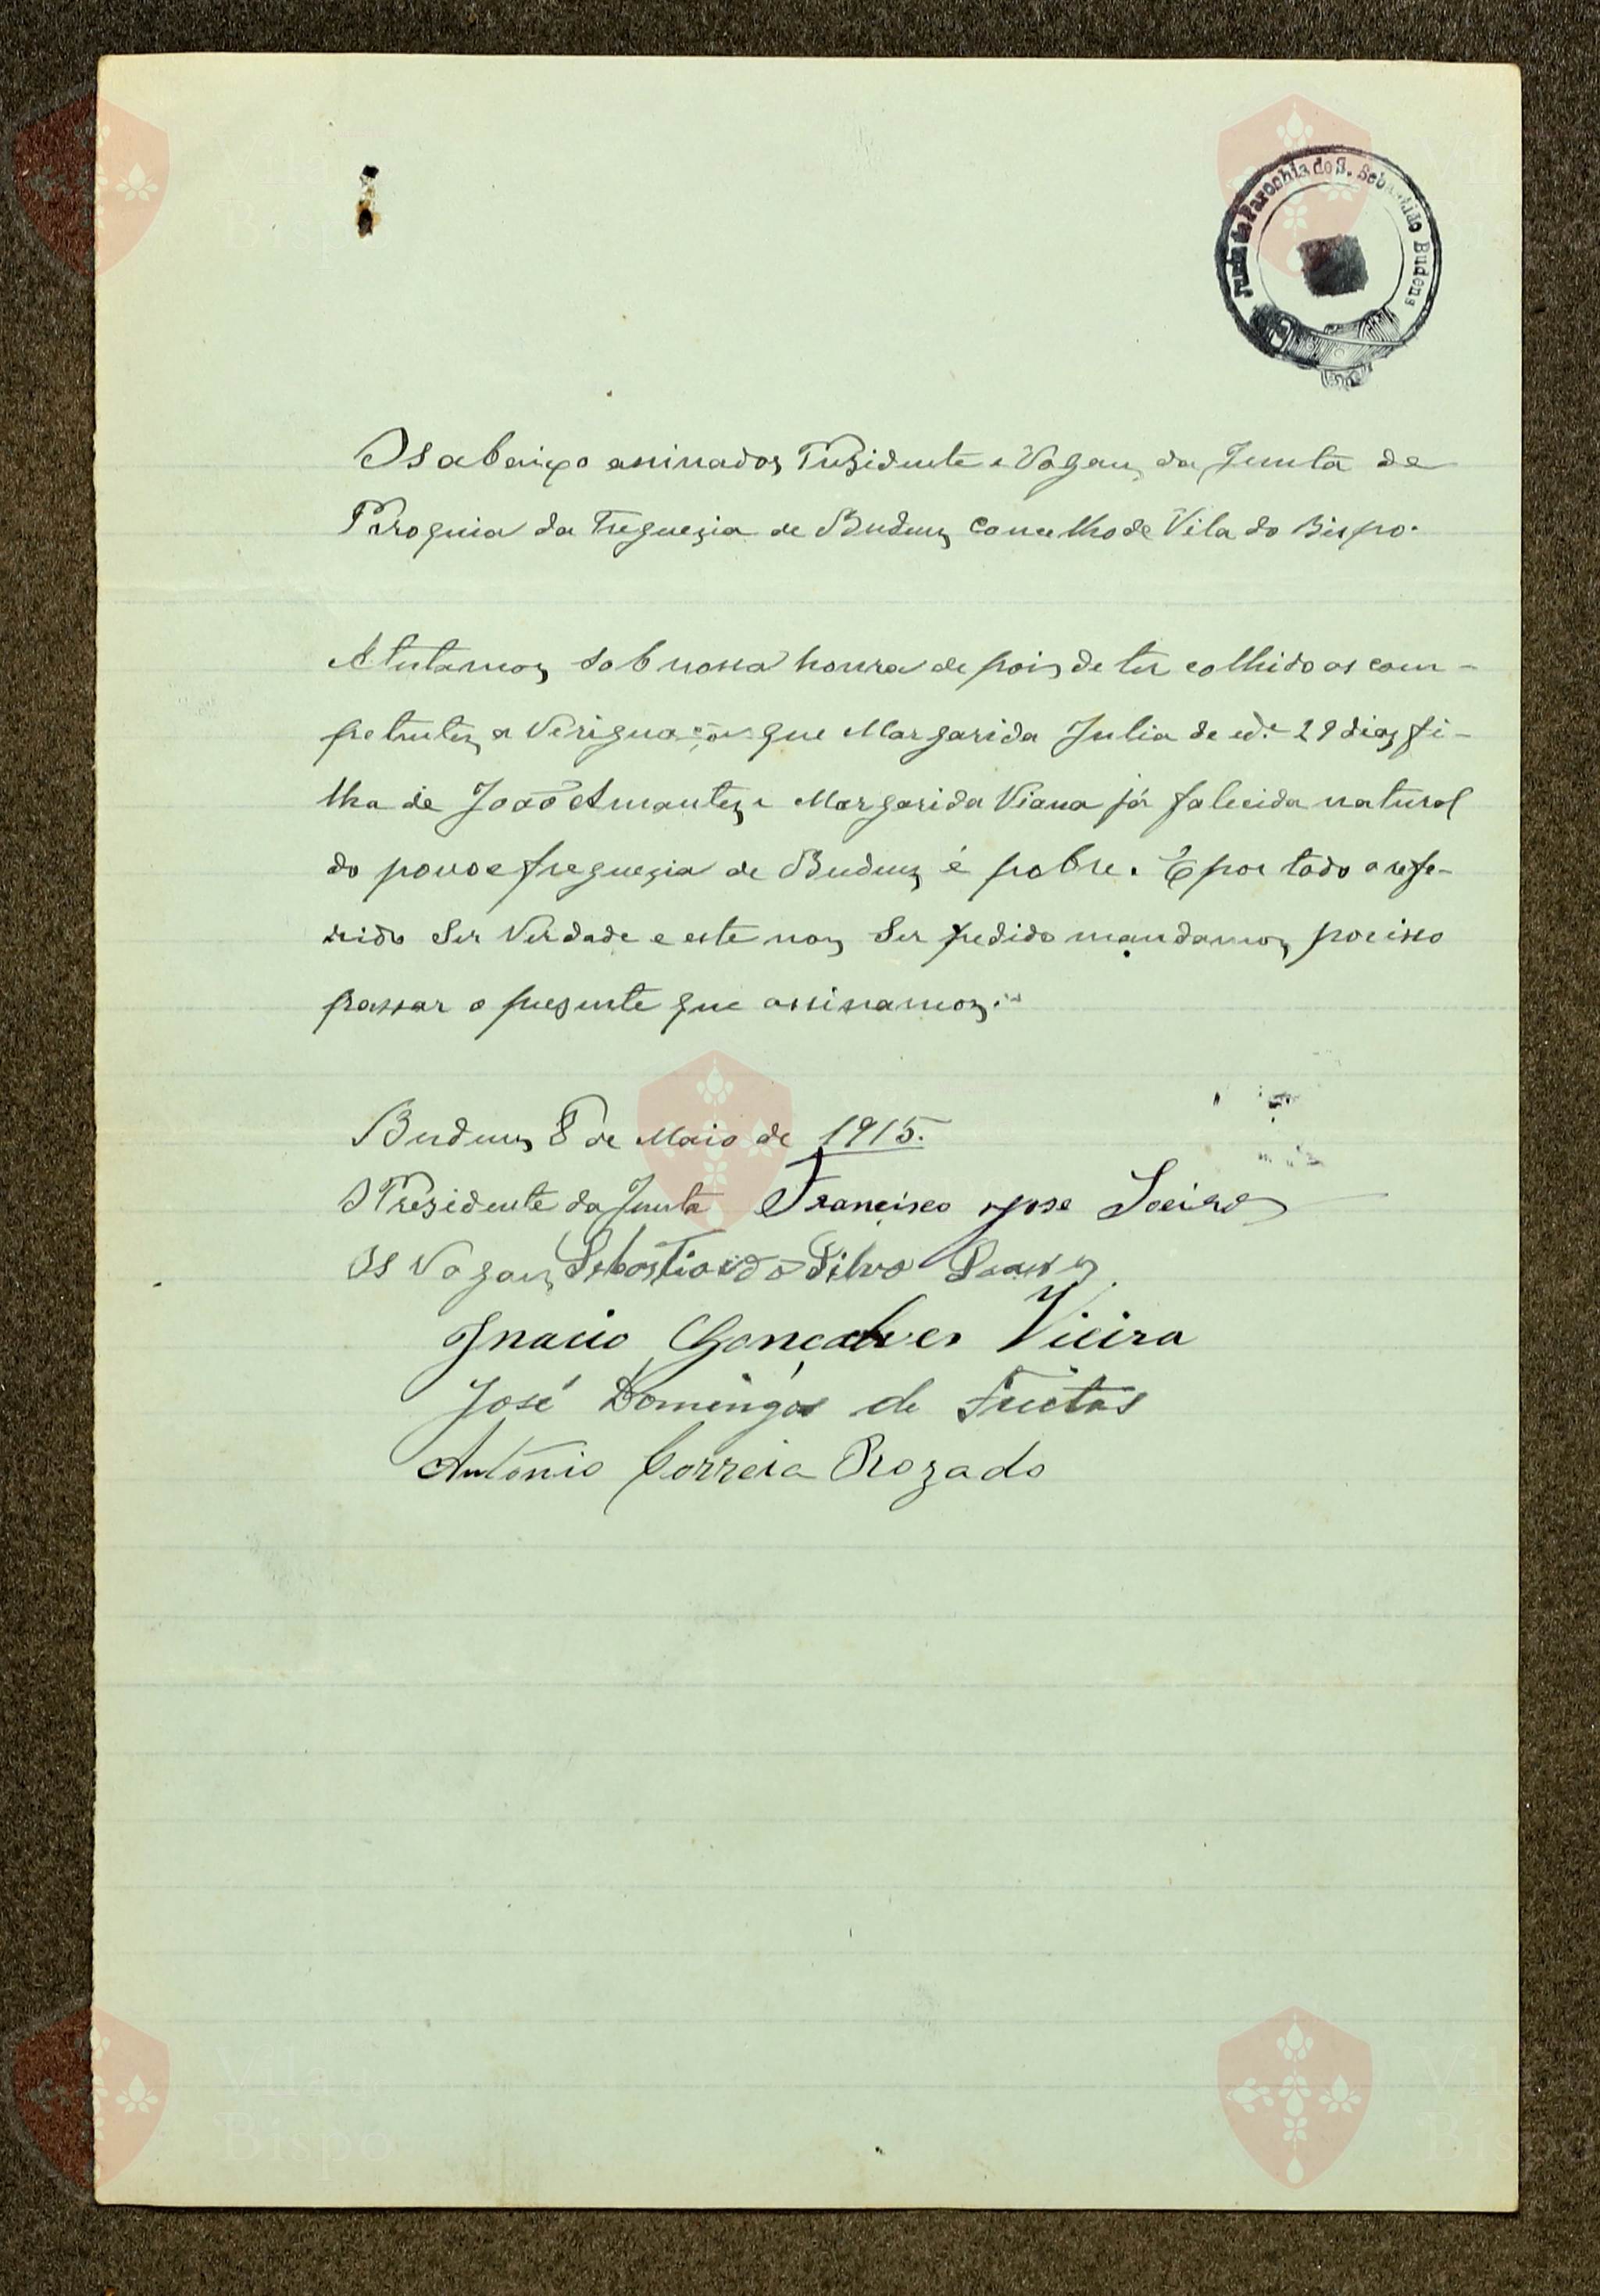 Junta da Parochia de S. Sebastião Budens
Os abaixo assinados Presidente e Vogaes da Junta de
Paroquia da Freguezia de Budens concelho de Vila do Bispo.
Atestamos sob nossa honra de pois de ter colhido as com-
petentes a Veriguações que Margarida Julia de ed.e 29 dias fi-
lha de João Amantes e Margarida Viana já falecida natural
do povo e freguezia de Budens é pobre. E por todo o refe-
rido Ser Verdade e este nos Ser pedido mandamos por isso
passar o prezente que assinamos.
Budens 8 de Maio de 1915.
O Prezidente da Junta Francisco Jose Soeiro
Os Vogaes Sebastião da Silva
Ignacio Gonçalves Vieira
José Domingos de Freitas
António Correia Rozado
Vila do
Bispo